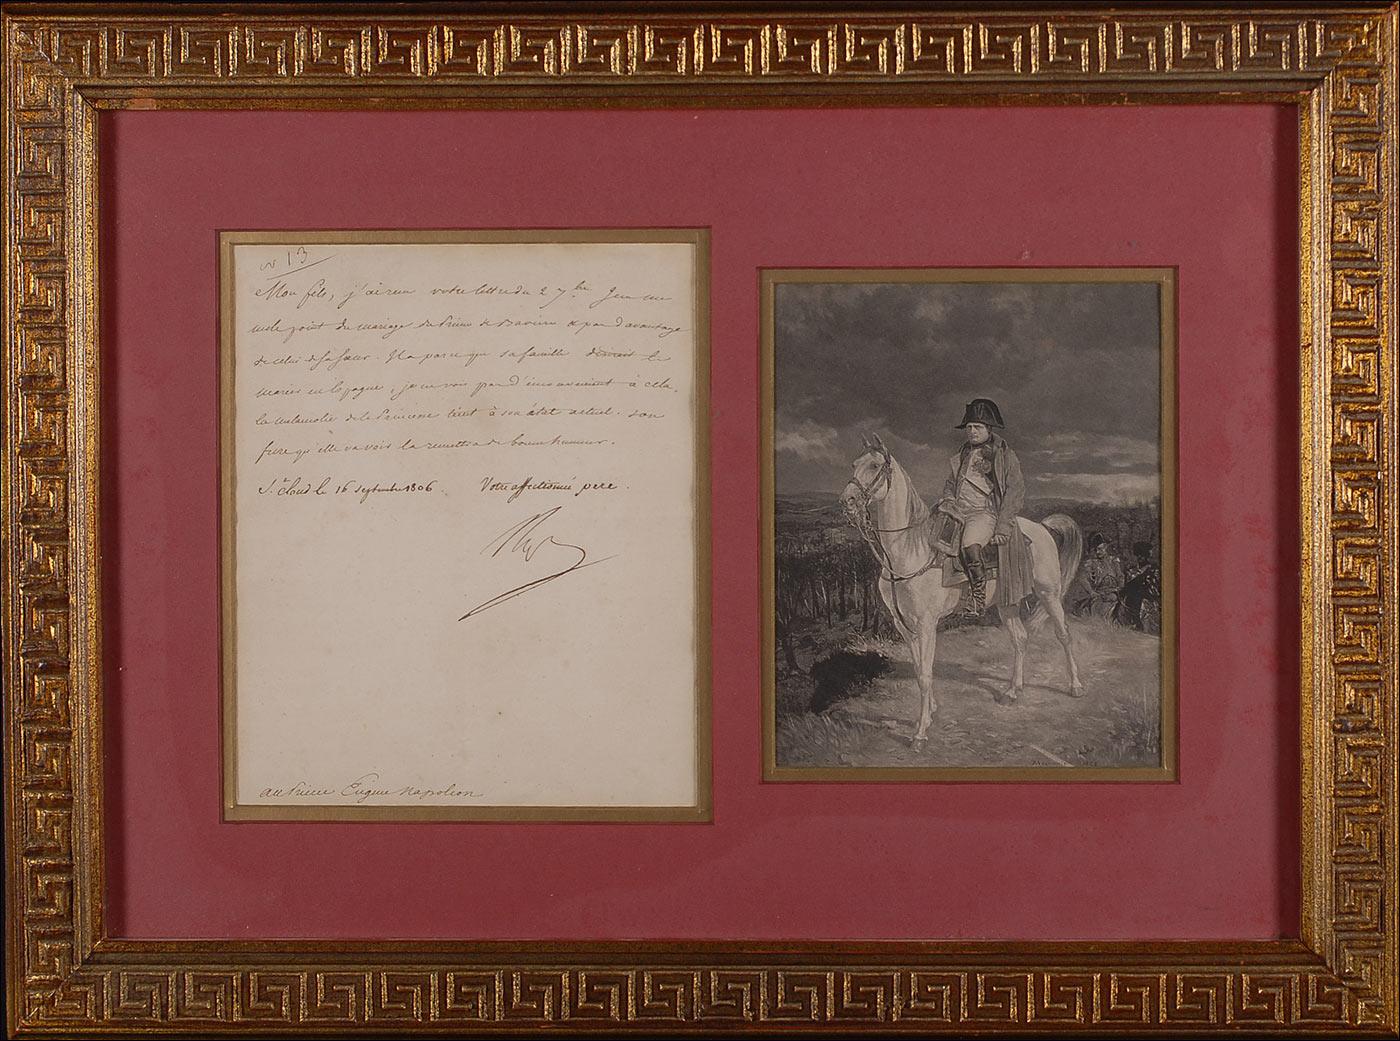 N 13
Mon fils, j'ai reçu votre lettre du 2 7bre Je ne me
mele point du mariage du Prince de Baviere & pas d'avantage
de celui de sa sœur. Il a paru que sa famille désirait le
marier en Espagne, je ne vois pas d'inconvenient à cela.
la melancolie de la Princesse tient à son état actuel. son
frere qu'elle va voir la remettra de bonne humeur.
St Cloud le 16 septembre 1806 Votre affectionné pere.
Nap
au Prince Eugene Napoleon